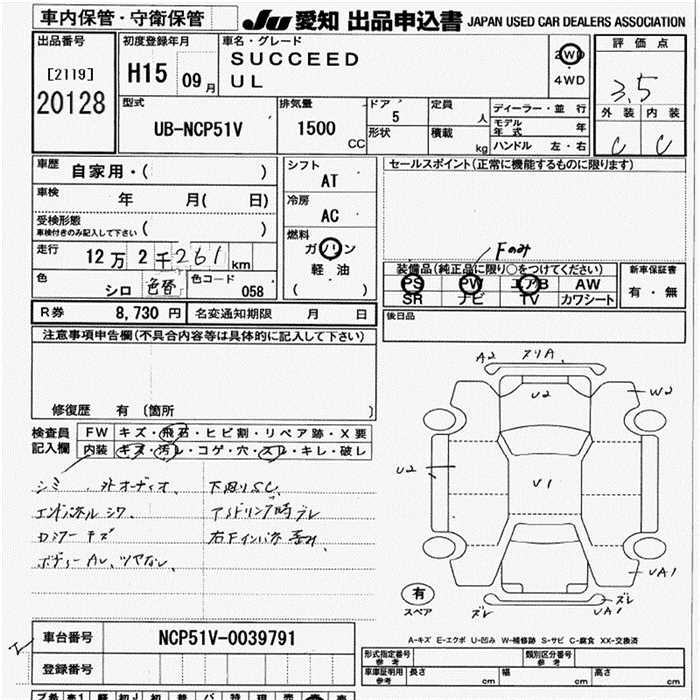 車内保管・守衛保管
JU 愛知 出品申込書 JAPAN USED CAR DEALERS ASSOCIATION
出品番号
[2119]
20128
初度登録年月
H15 09月
車名・グレード
SUCCEED
UL
2WD
4WD
評価点
3.5
外装 内装
C C
型式
UB-NCP51V
排気量
1500 CC
ドア
5
形状
定員 人
積載 kg
ディーラー・並行
モデル年式 年
ハンドル 左・右
車歴 自家用・( )
車検 年 月( 日)
受検形態
車検付きのみ記入して下さい ( )
走行 12万2千261km
色 シロ 色替 色コード 058
シフト
AT
冷房
AC
燃料
ガソリン
軽油
( )
セールスポイント(正常に機能するものに限ります)
Fのみ
装備品(純正品に限り○をつけてください)
PS PW エアB AW
SR ナビ TV カワシート
新車保証書
有・無
R券 8,730円 名変通知期限 月 日
後日品
注意事項申告欄(不具合内容等は具体的に記入して下さい)
修復歴 有 〔箇所 〕
検査員記入欄
FW キズ・飛石・ヒビ割・リペア跡・X要
内装 キズ・汚レ・コゲ・穴・スレ・キレ・破レ
シミ 外オーディオ、 下回りSC
エンドパネルシワ アイドリング時ブレ
ロッカーキズ 右Fインパネ歪み
ボディーAL、ツヤなし
A2 ズリA
U2 W2
U2
V1
UA1
ズレ UA1 ズレ
有
スペア
車台番号 NCP51V-0039791
登録番号
A-キズ E-エクボ U-凹み W-補修跡 S-サビ C-腐食 XX-交換済
型式指定番号 参考
類別区分番号 参考
車庫証明用 参考 長さ 幅 高さ